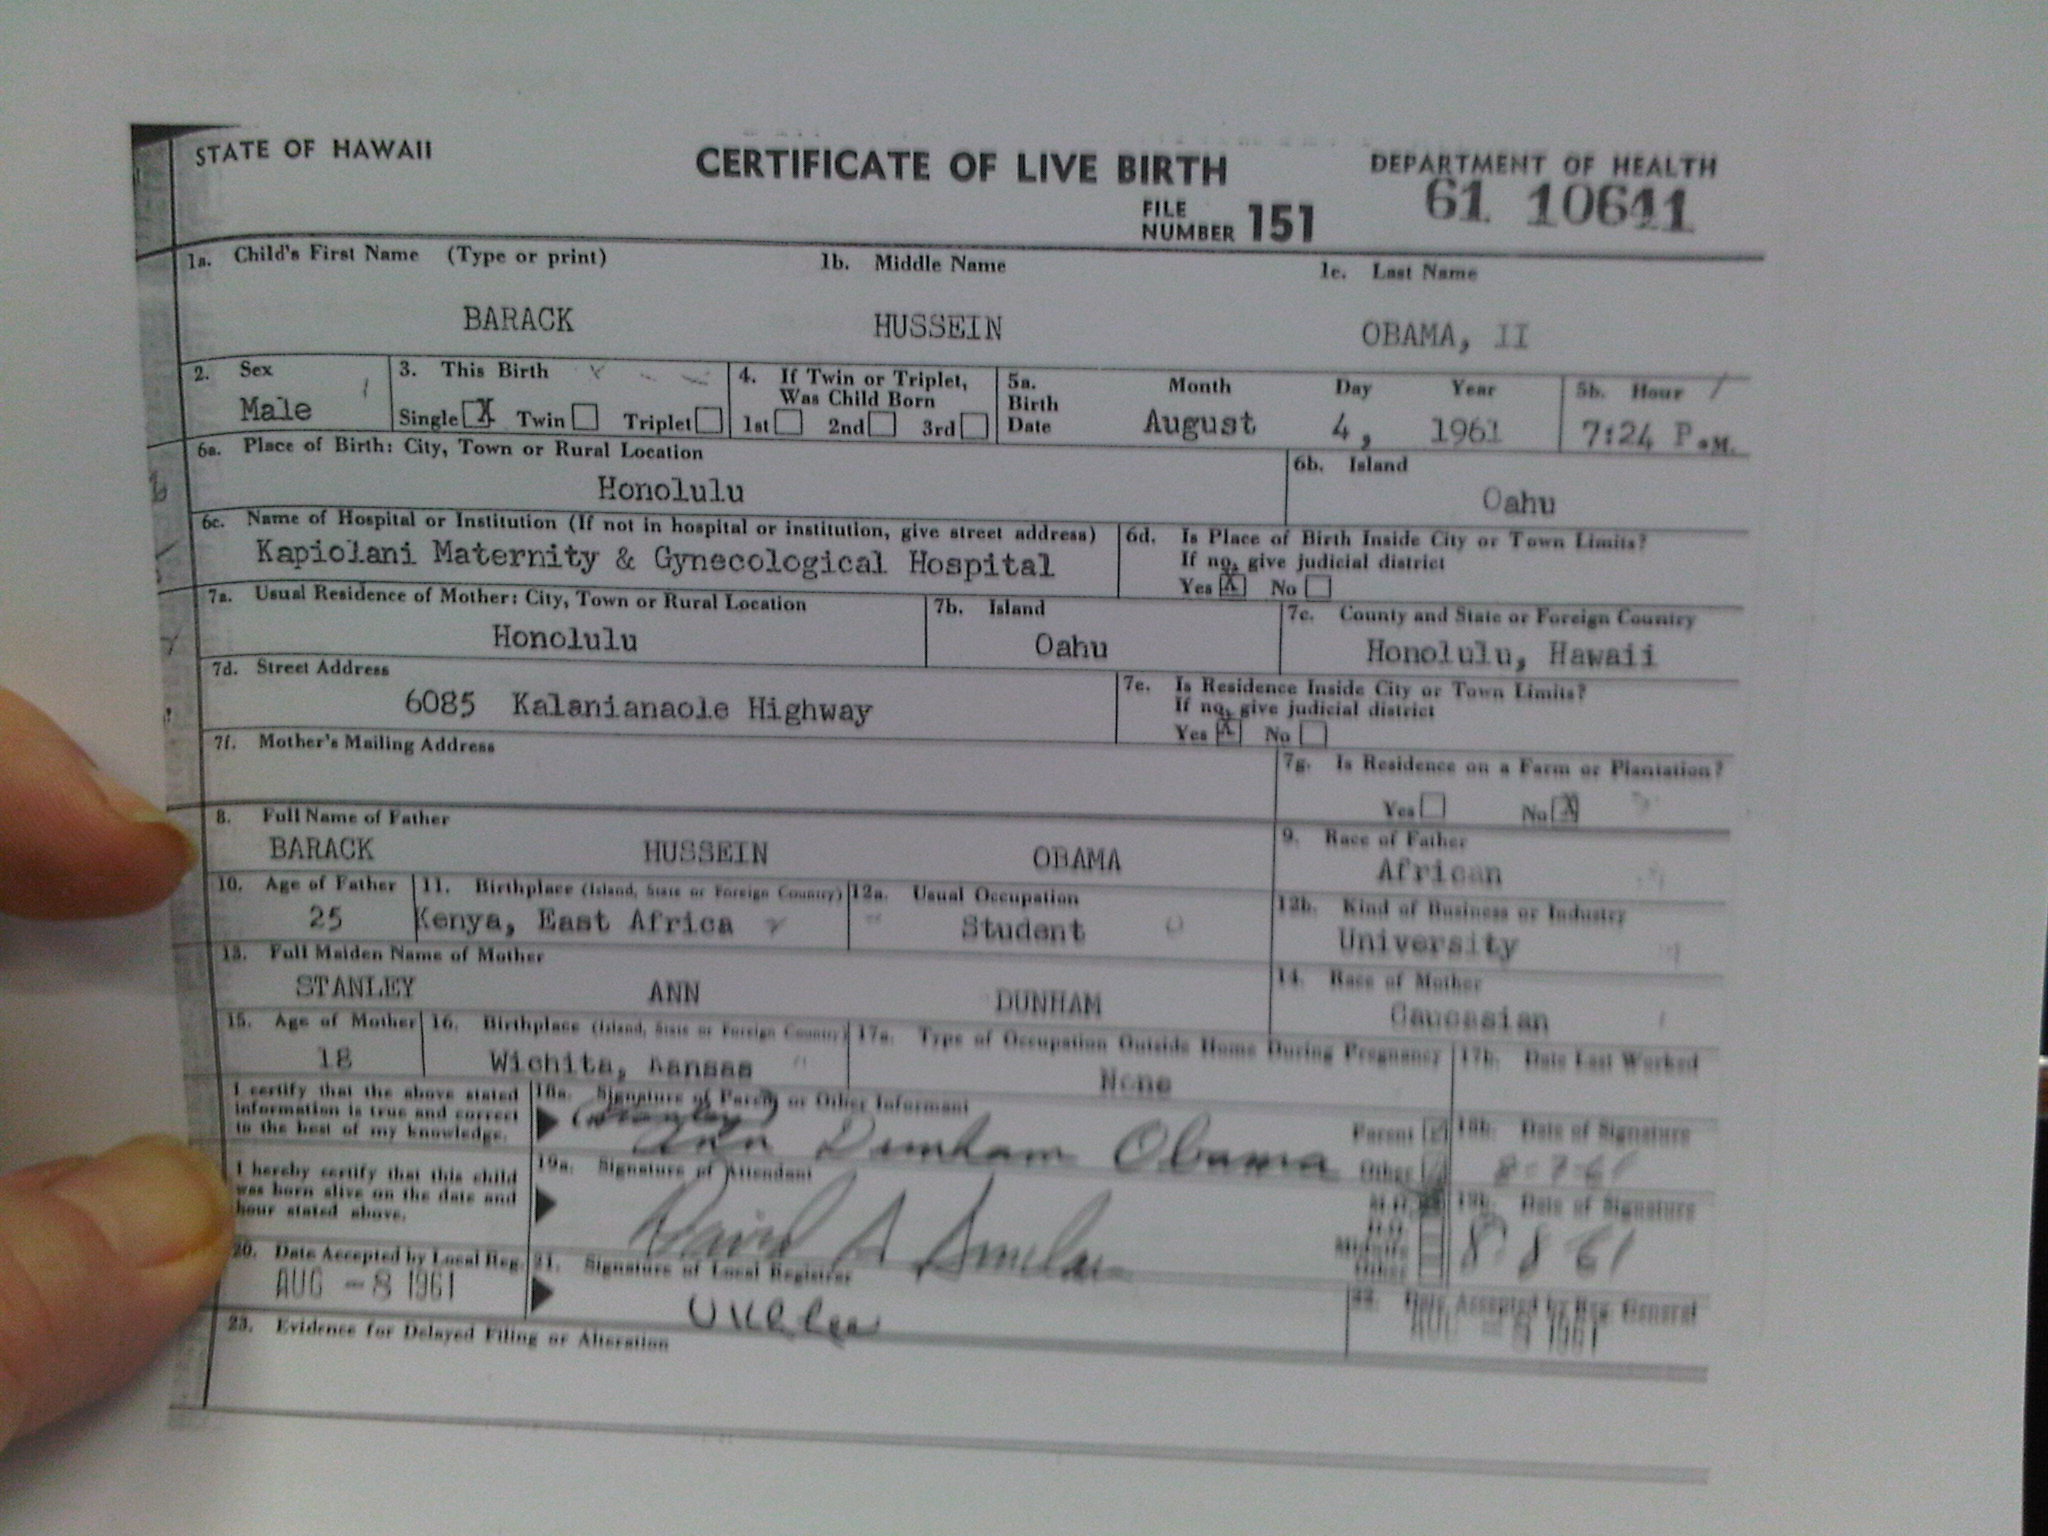 STATE OF HAWAII CERTIFICATE OF LIVE BIRTH DEPARTMENT OF HEALTH
FILE NUMBER 151 61 10641
1a. Child's First Name (Type or print) 1b. Middle Name 1c. Last Name
BARACK HUSSEIN OBAMA, II
2. Sex 3. This Birth 4. If Twin or Triplet, Was Child Born 5a. Birth Date Month Day Year 5b. Hour
Male Single X Twin Triplet 1st 2nd 3rd August 4, 1961 7:24 P.M.
6a. Place of Birth: City, Town or Rural Location 6b. Island
Honolulu Oahu
6c. Name of Hospital or Institution (If not in hospital or institution, give street address) 6d. Is Place of Birth Inside City or Town Limits?
If no, give judicial district
Kapiolani Maternity & Gynecological Hospital Yes X No
7a. Usual Residence of Mother: City, Town or Rural Location 7b. Island 7c. County and State or Foreign Country
Honolulu Oahu Honolulu, Hawaii
7d. Street Address 7e. Is Residence Inside City or Town Limits?
If no, give judicial district
6085 Kalanianaole Highway Yes X No
7f. Mother's Mailing Address 7g. Is Residence on a Farm or Plantation?
Yes No X
8. Full Name of Father 9. Race of Father
BARACK HUSSEIN OBAMA African
10. Age of Father 11. Birthplace (Island, State or Foreign Country) 12a. Usual Occupation 12b. Kind of Business or Industry
25 Kenya, East Africa Student University
13. Full Maiden Name of Mother 14. Race of Mother
STANLEY ANN DUNHAM Caucasian
15. Age of Mother 16. Birthplace (Island, State or Foreign Country) 17a. Type of Occupation Outside Home During Pregnancy 17b. Date Last Worked
18 Wichita, Kansas None
I certify that the above stated information is true and correct to the best of my knowledge.
18a. Signature of Parent or Other Informant Parent Other 18b. Date of Signature
(Stanley) Ann Dunham Obama 8-7-61
I hereby certify that this child was born alive on the date and hour stated above.
19a. Signature of Attendant M.D. D.O. Midwife Other 19b. Date of Signature
David A 8 8 61
20. Date Accepted by Local Reg. 21. Signature of Local Registrar 22. Date Accepted by Reg. General
AUG -8 1961 AUG -8 1961
23. Evidence for Delayed Filing or Alteration